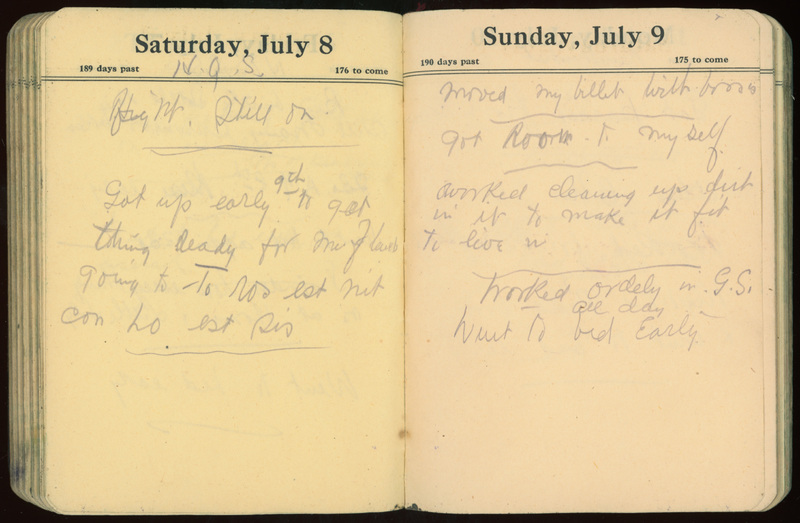 Saturday, July 8
189 days past
176 to come
Still on.
9th
Got up early to get
thing Ready for
going to To est
con Lo est
Sunday, July 9
190 days past
175 to come
moved my billet with
got Room. To my self
worked cleaning up dirt
in it to make it fit
to live in
Worked ordely in G.S.
all day
Went To bed Early